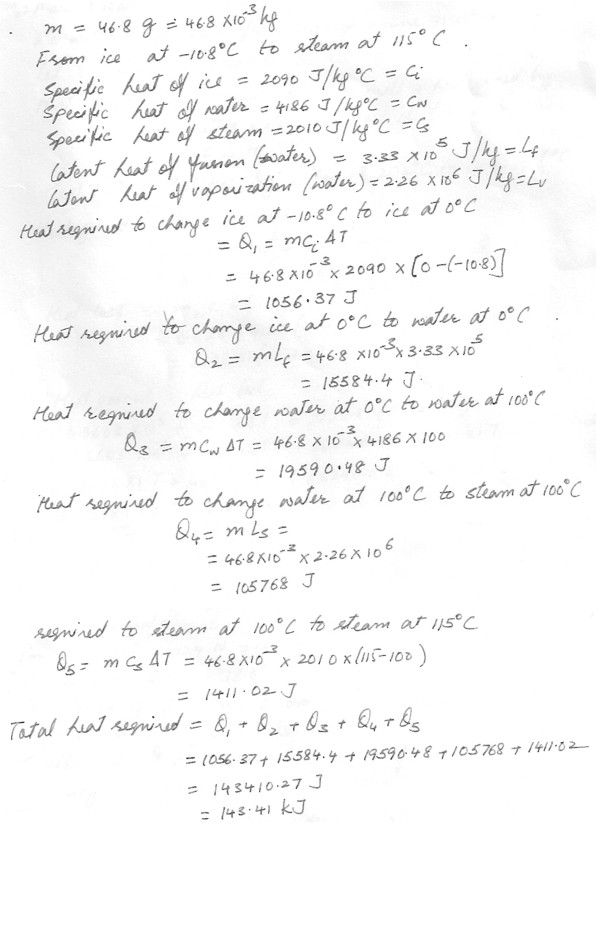 . m = 46.8 g = 46.8 X10⁻³ kg
From ice at -10.8°C to steam at 115°C.
Specific heat of ice = 2090 J/kg°C = Ci
Specific heat of water = 4186 J/kg°C = Cw
Specific heat of steam = 2010 J/kg°C = Cs
Latent heat of fusion (water) = 3.33 X10⁵ J/kg = Lf
Latent heat of vaporization (water) = 2.26 X10⁶ J/kg = Lv
Heat required to change ice at -10.8°C to ice at 0°C
= Q₁ = mCi ΔT
= 46.8 X10⁻³ x 2090 x [0-(-10.8)]
= 1056.37 J
Heat required to change ice at 0°C to water at 0°C.
Q₂ = mLf = 46.8 X10⁻³ x 3.33 X10⁵
= 15584.4 J.
Heat required to change water at 0°C to water at 100°C
Q₃ = mCw ΔT = 46.8 X 10⁻³ x 4186 X 100
= 19590.48 J
Heat required to change water at 100°C to steam at 100°C
Q₄ = mLs =
= 46.8X10⁻³ X 2.26 X 10⁶
= 105768 J
required to steam at 100°C to steam at 115°C
Q₅ = m Cs ΔT = 46.8 X10⁻³ x 2010 x (115-100)
= 1411.02 J
Total heat required = Q₁ + Q₂ + Q₃ + Q₄ + Q₅
= 1056.37 + 15584.4 + 19590.48 + 105768 + 1411.02
= 143410.27 J
= 143.41 kJ